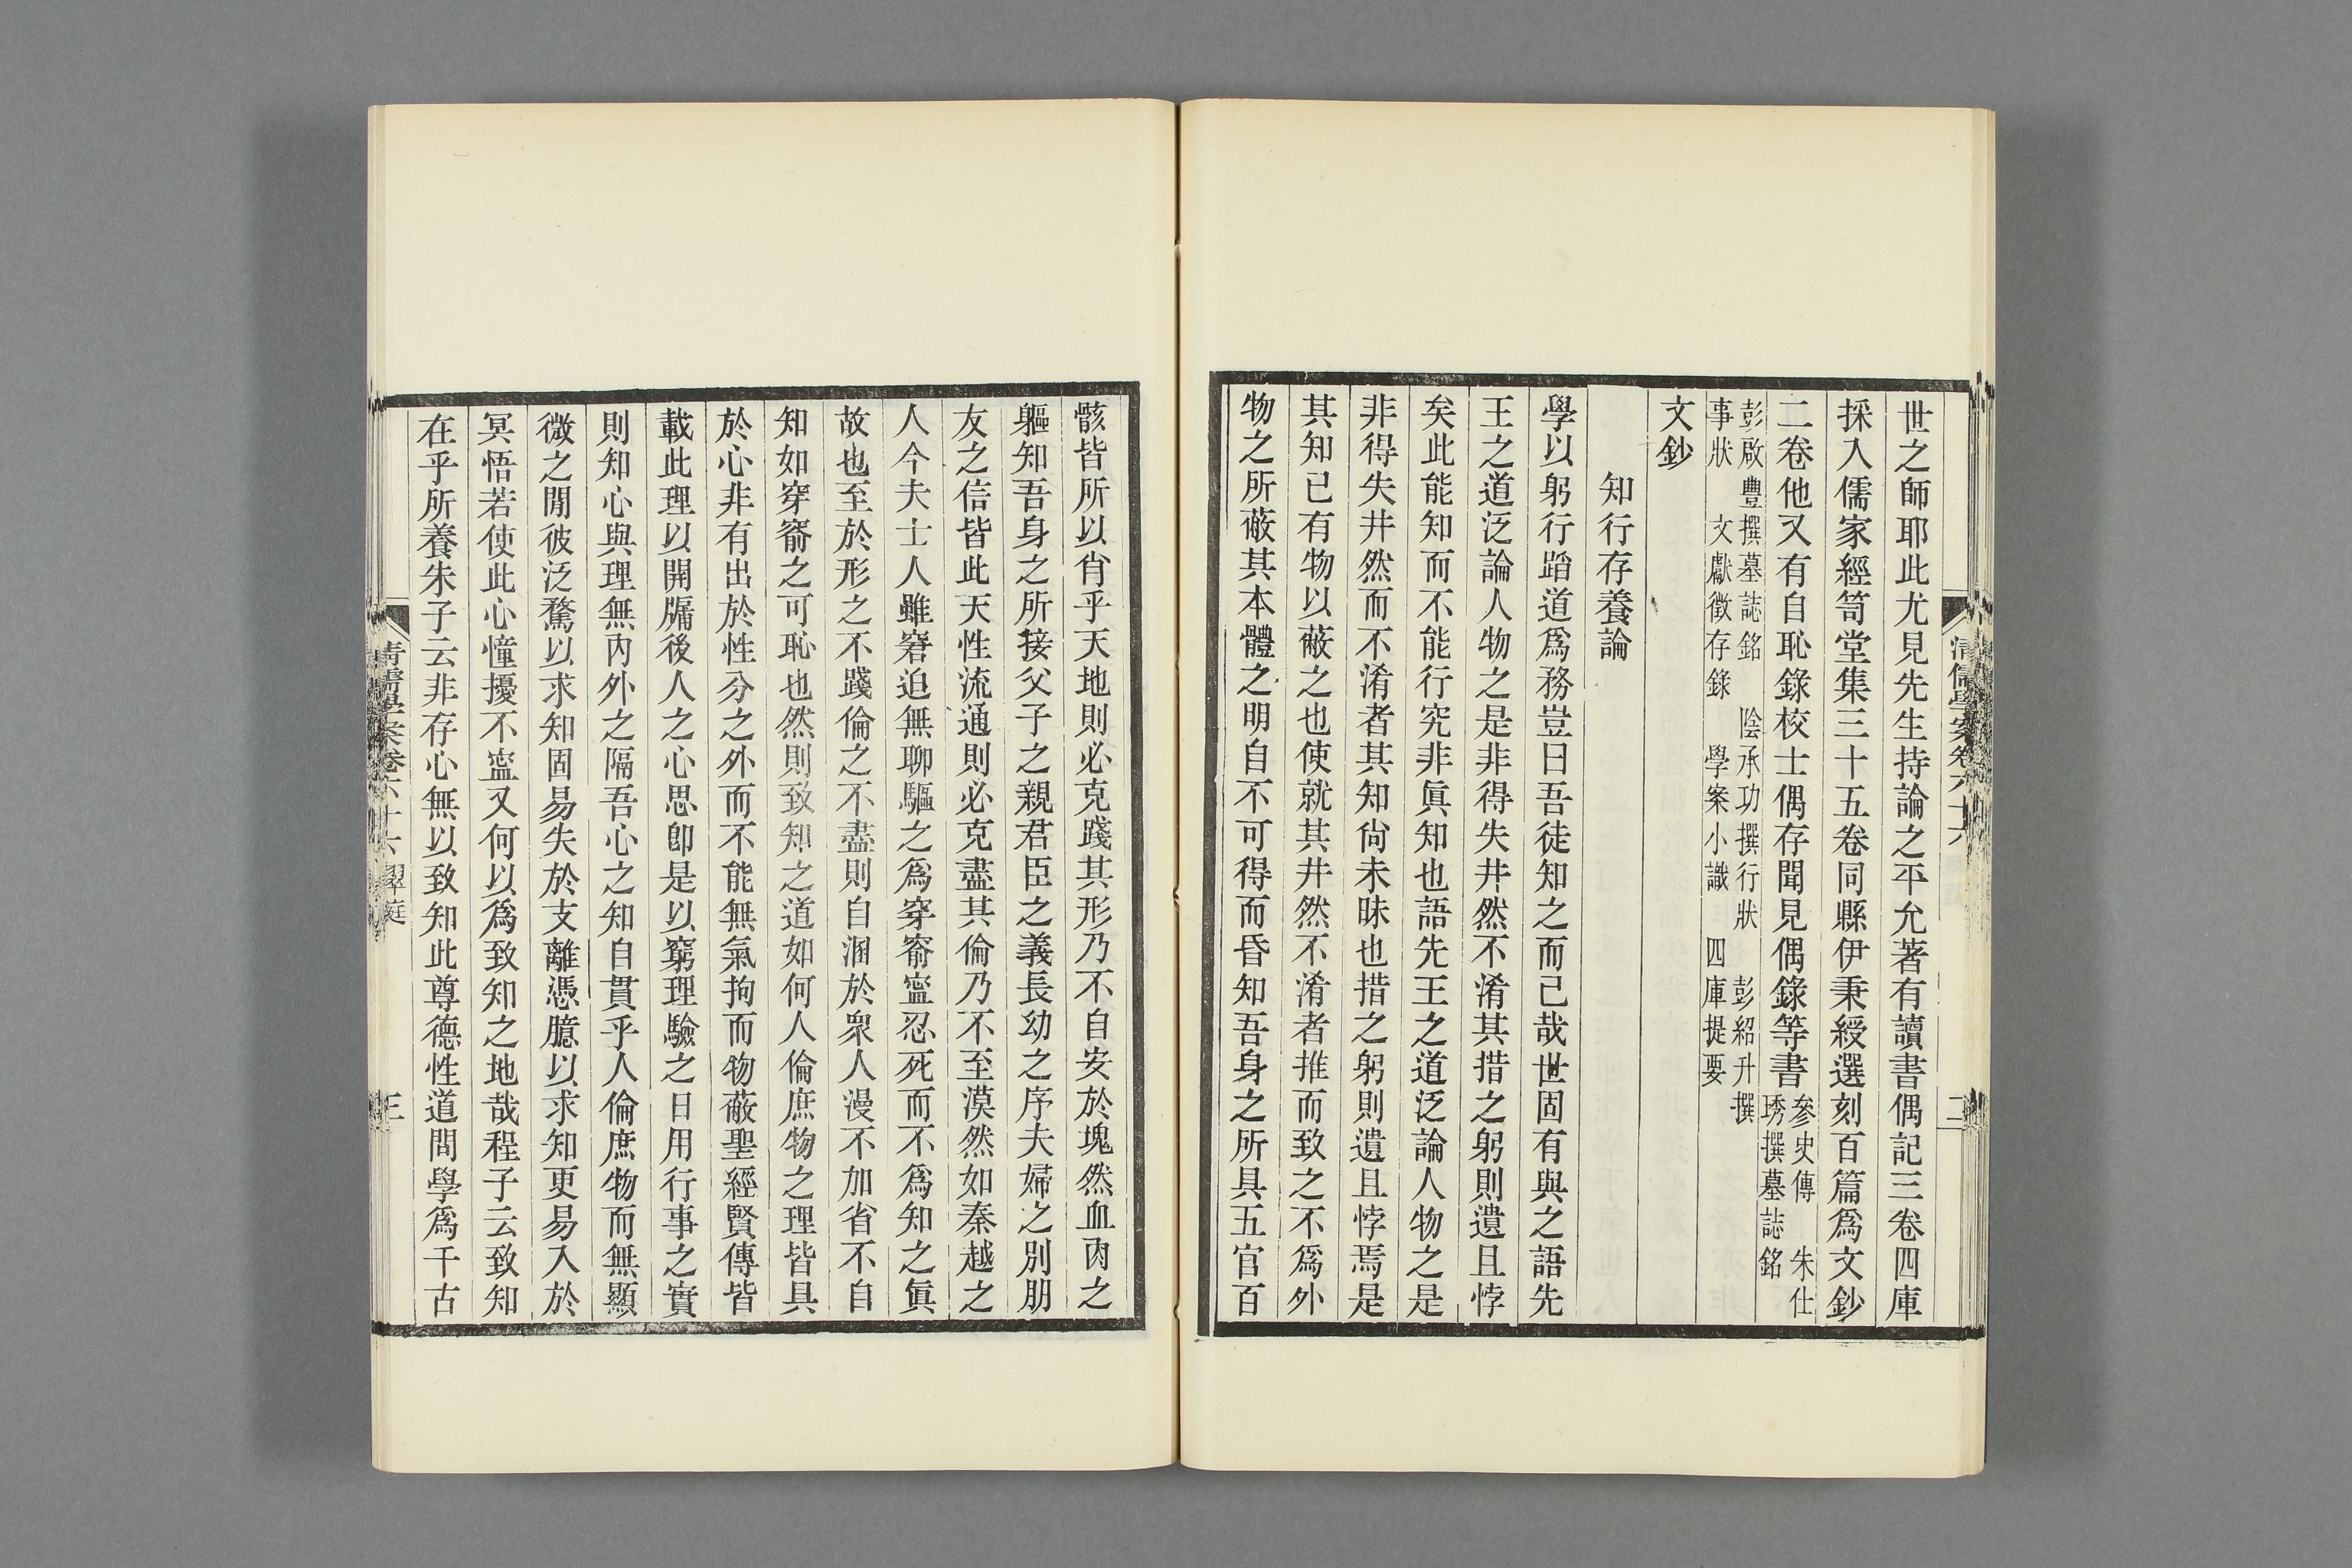 清儒學案卷六十六
二
世之師耶此尤見先生持論之平允著有讀書偶記三卷四庫
採入儒家經笥堂集三十五卷同縣伊秉綬選刻百篇爲文鈔
二卷他又有自恥錄校士偶存聞見偶錄等書參史傳　朱仕
琇撰墓誌銘
彭啟豐撰墓誌銘　陰承功撰行狀　彭紹升撰
事狀　文獻徵存錄　學案小識　四庫提要
文鈔
知行存養論
學以躬行蹈道爲務豈曰吾徒知之而已哉世固有與之語先
王之道泛論人物之是非得失井然不淆其措之躬則遺且悖
矣此能知而不能行究非眞知也語先王之道泛論人物之是
非得失井然而不淆者其知尙未昧也措之躬則遺且悖焉是
其知已有物以蔽之也使就其井然不淆者推而致之不爲外
物之所蔽其本體之明自不可得而昏知吾身之所具五官百
骸皆所以肖乎天地則必克踐其形乃不自安於塊然血肉之
軀知吾身之所接父子之親君臣之義長幼之序夫婦之別朋
友之信皆此天性流通則必克盡其倫乃不至漠然如秦越之
人今夫士人雖窘迫無聊驅之爲穿窬寍忍死而不爲知之眞
故也至於形之不踐倫之不盡則自溷於衆人漫不加省不自
知如穿窬之可恥也然則致知之道如何人倫庶物之理皆具
於心非有出於性分之外而不能無氣拘而物蔽聖經賢傳皆
載此理以開牖後人之心思卽是以窮理驗之日用行事之實
則知心與理無內外之隔吾心之知自貫乎人倫庶物而無顯
微之閒彼泛騖以求知固易失於支離憑臆以求知更易入於
冥悟若使此心憧擾不寍又何以爲致知之地哉程子云致知
在乎所養朱子云非存心無以致知此尊德性道問學爲千古
清儒學案卷六十六　翠庭
三